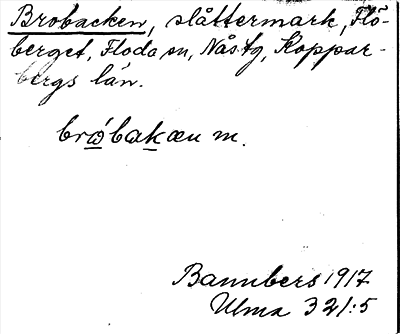 Brobacken, slåttermark, Flö-
berget, Floda sn, Nås tg, Koppar-
bergs län.
brὼbakæn m.
Bannbers 1917
Ulma 321:5